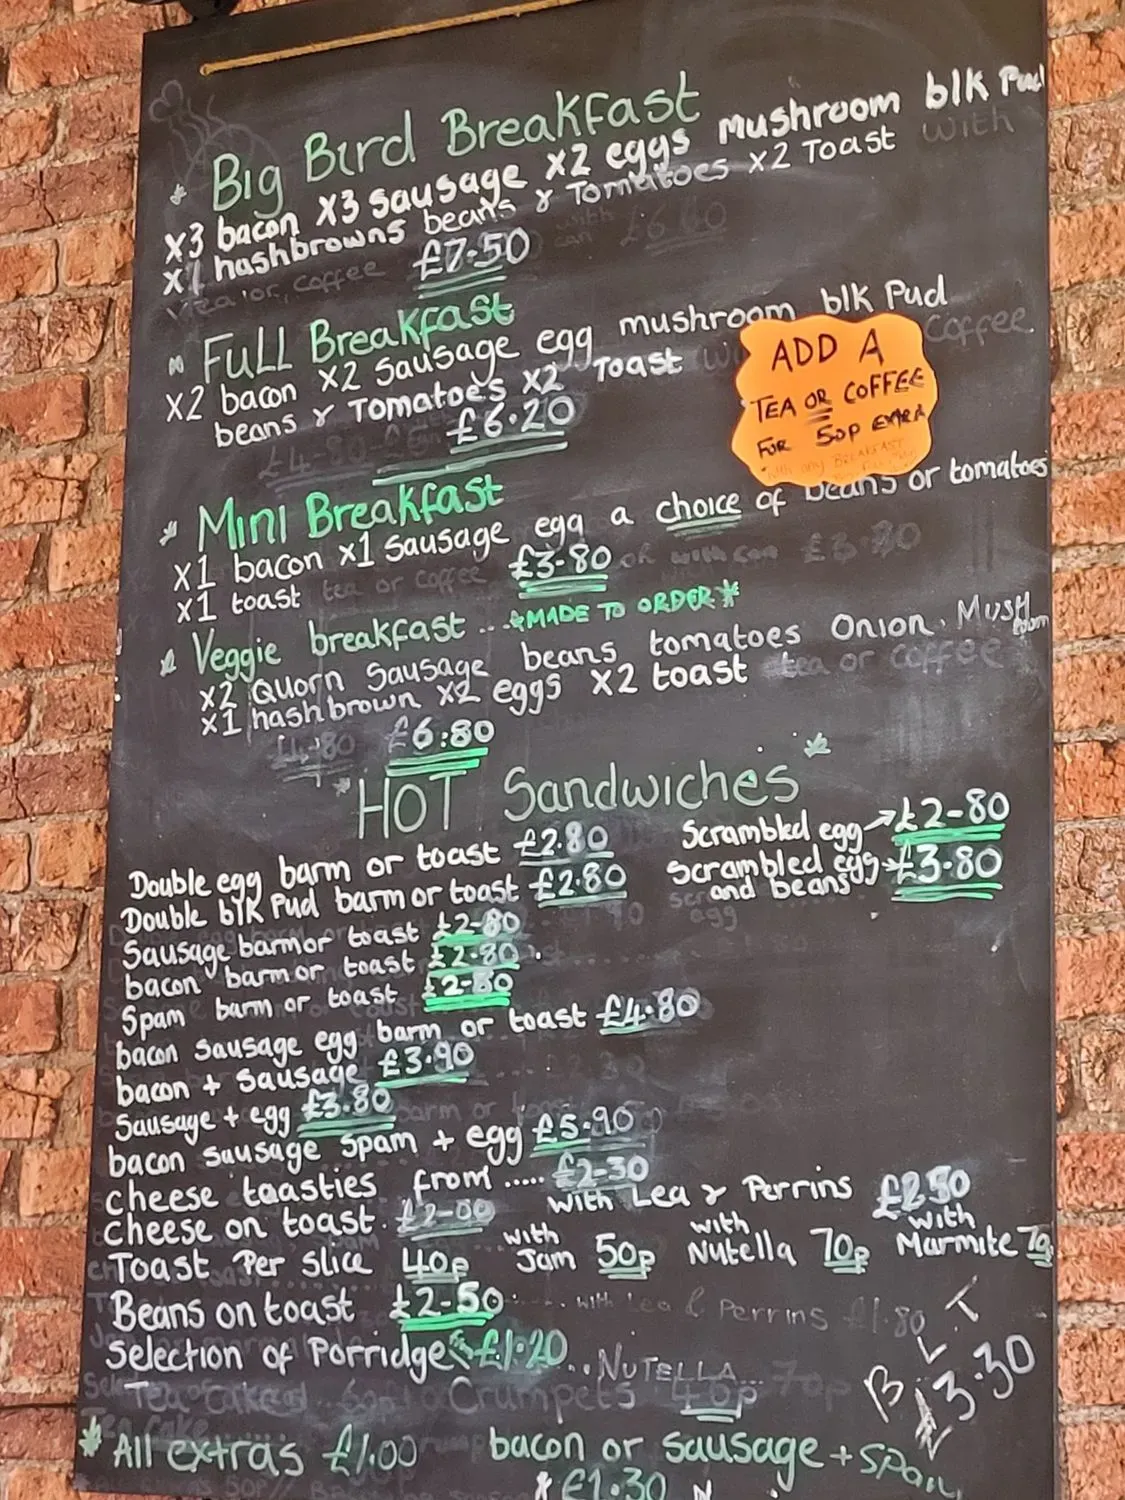 Big Bird Breakfast
x3 bacon x3 sausage x2 eggs mushroom blk Pud
x1 hashbrowns beans & Tomatoes x2 Toast with
tea or coffee £7.50
Full Breakfast
x2 bacon x2 sausage egg mushroom blk Pud
beans & Tomatoes x2 Toast Coffee
£6.20
ADD A
TEA OR COFFEE
FOR 50p EXTRA
with any BREAKFAST
Mini Breakfast
x1 bacon x1 sausage egg a choice of beans or tomatoes
x1 toast tea or coffee £3-80 or with can £3-80
Veggie breakfast ... *MADE TO ORDER*
x2 Quorn Sausage beans tomatoes Onion. Mushroom
x1 hashbrown x2 eggs x2 toast tea or coffee
£4-80 £6.80
HOT Sandwiches
Double egg barm or toast £2.80
Scrambled egg → £2-80
Double blk Pud barm or toast £2.80
Scrambled egg → £3.80
and beans
Sausage barm or toast £2-80
bacon barm or toast £2-80
Spam barm or toast £2-80
bacon sausage egg barm or toast £4.80
bacon + sausage £3.90
Sausage + egg £3.80
bacon sausage spam + egg £5.90
cheese toasties from ..... £2-30
cheese on toast. £2-00 with Lea & Perrins £2.50
Toast Per slice 40p ... with Jam 50p with Nutella 70p with Marmite
Beans on toast £2-50 .... with Lea & Perrins £1.80
Selection of Porridge £1.20
B L T
£3.30
NUTELLA... 70p
Crumpets 40p
* All extras £1.00 bacon or sausage + Spam
£1.30